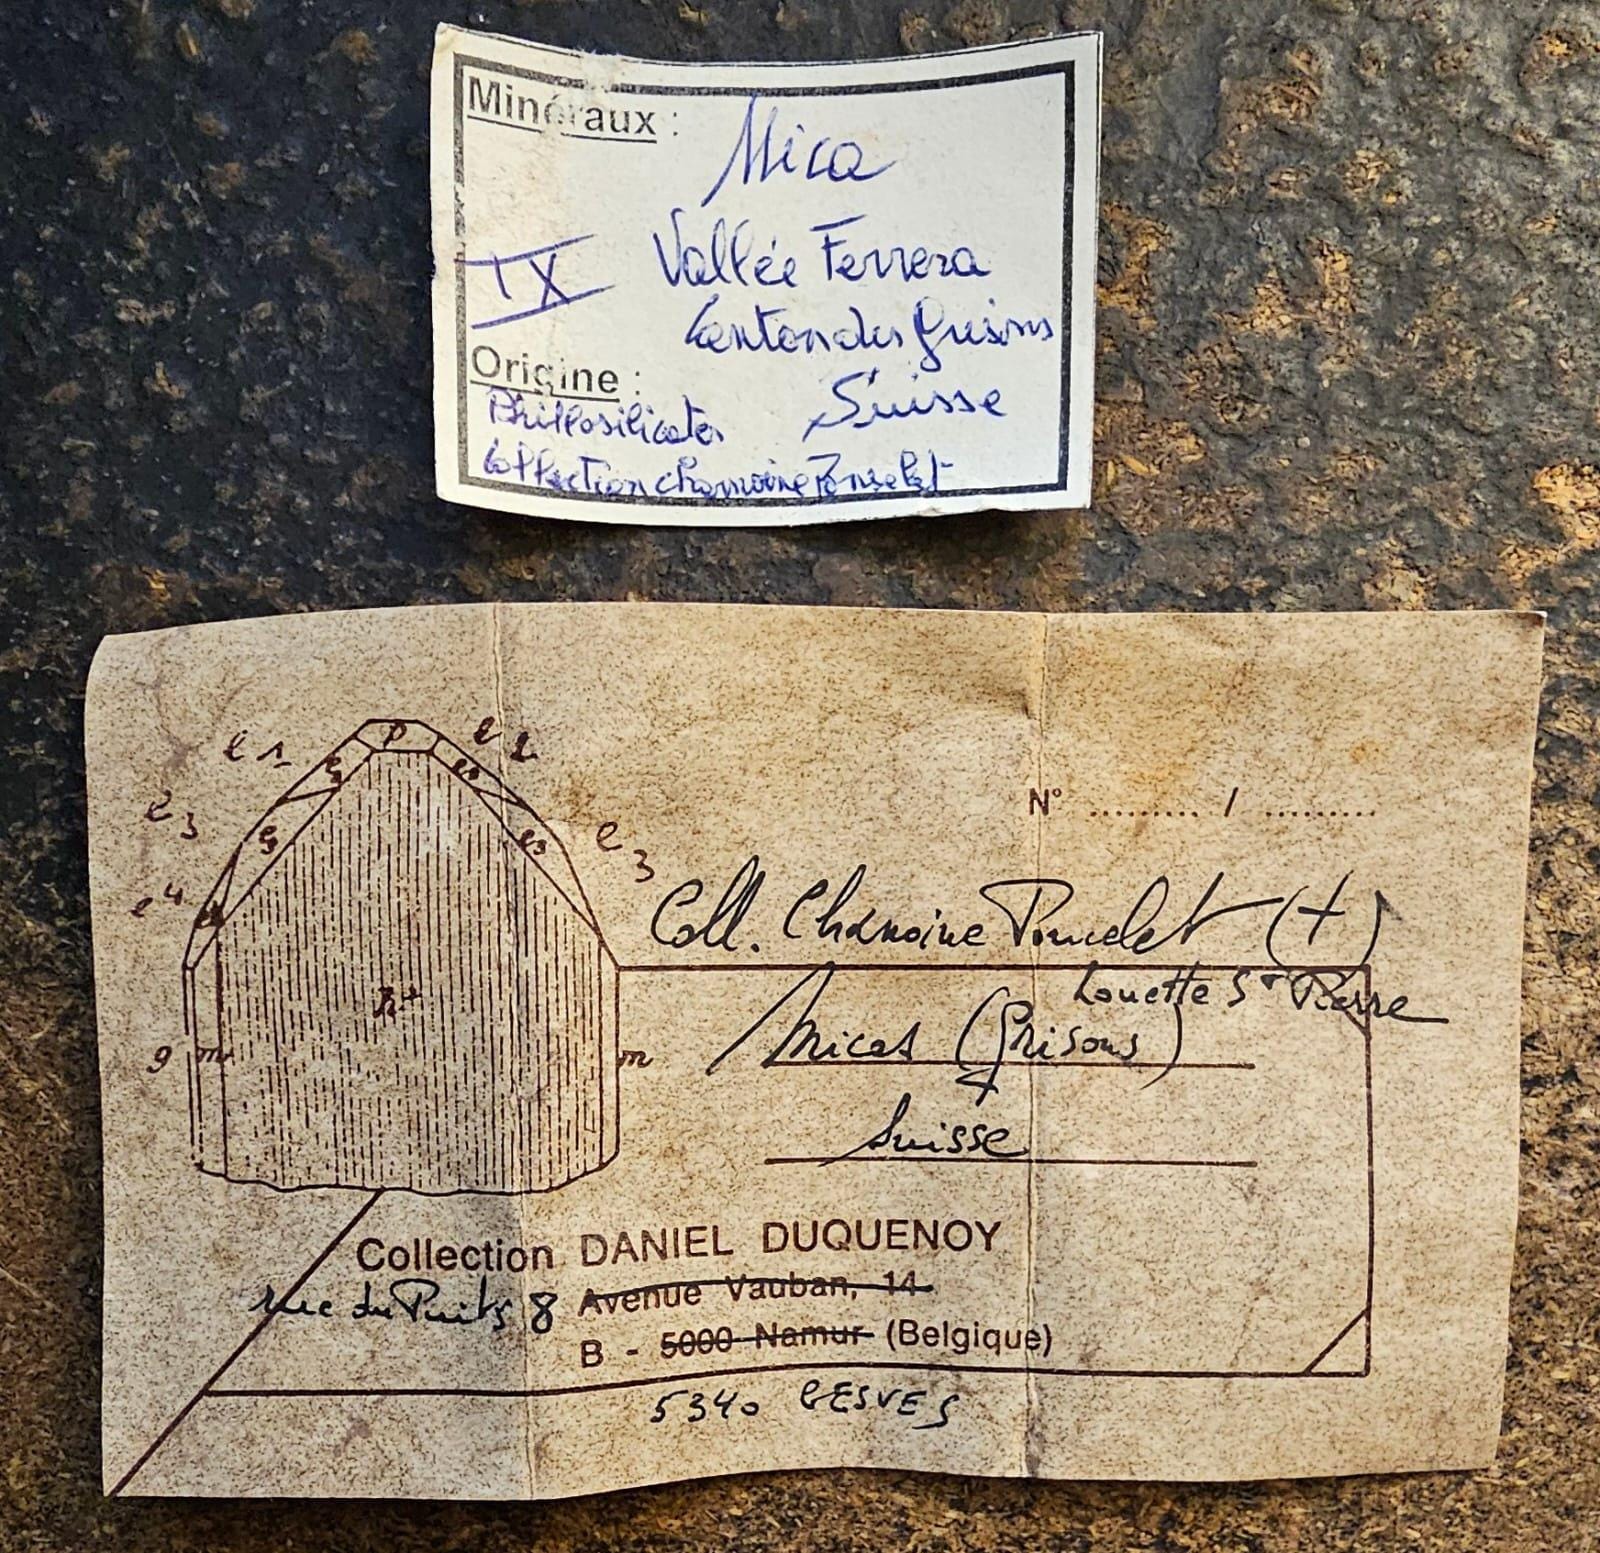 Minéraux :
Mica
IX
Vallée Ferrera
Canton des Grisons
Origine :
Suisse
Phillosilicates
Collection chanoine Poncelet
p
e1
e2
e3
e3
e3
e3
e4
h1
g
m
m
N° ......... / .........
Coll. Chanoine Poncelet (+)
Louette St Pierre
Micas (Grisons)
Suisse
Collection DANIEL DUQUENOY
rue du Puits 8 Avenue Vauban, 14
B - 5000 Namur (Belgique)
5340 GESVES